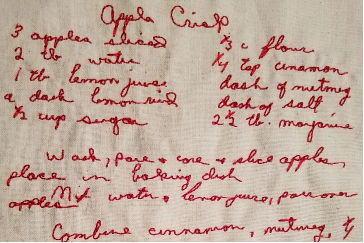 Apple Crisp
3 apples sliced
2 tb water
1 tb lemon juice
a dash lemon rind
1/2 cup sugar
1/3 c flour
1/4 tsp cinamon
dash of nutmeg
dash of salt
2 1/2 tb. margarine
Wash, pare + core + slice apples,
place in baking dish
apples Mix water + lemon juice, pour over
Combine cinnamon, nutmeg,